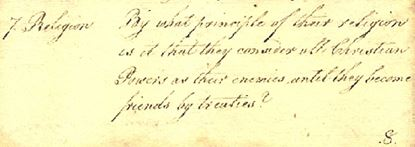 7. Religion By what principle of their religion
is it that they consider all Christian
Powers as their enemies, until they become
friends by treaties?
.8.